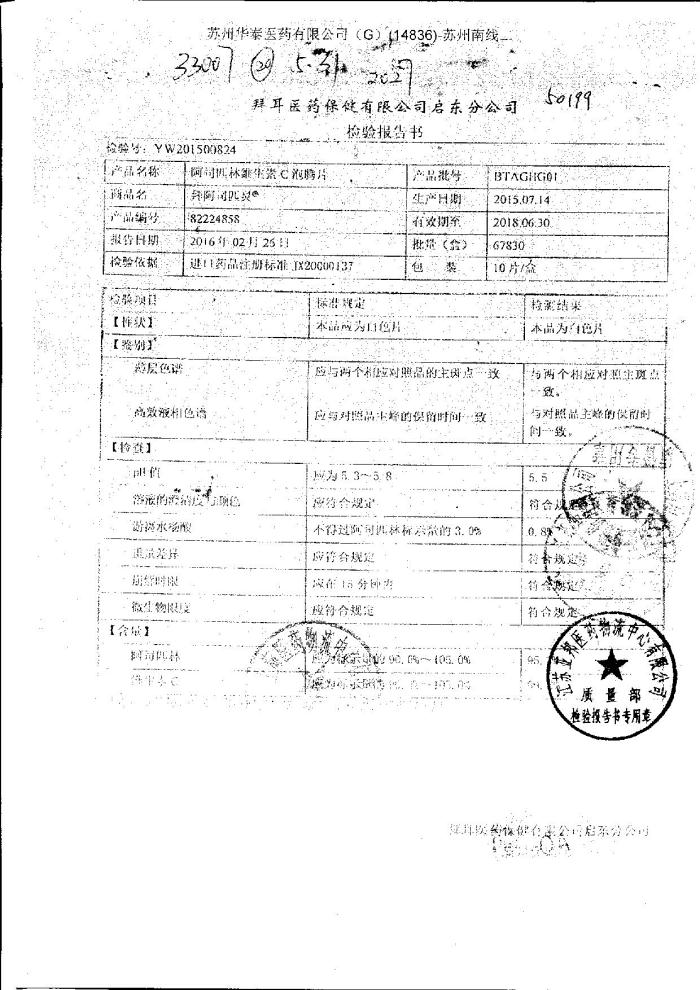 苏州华泰医药有限公司（G）(14836)-苏州南线二
33007 ⑳ 5-31
2027
50199
拜耳医药保健有限公司启东分公司
检验报告书
检验号：YW201500824
产品名称 阿司匹林维生素C泡腾片 产品批号 BTAGHG01
商品名 拜阿司匹灵® 生产日期 2015.07.14
产品编号 82224858 有效期至 2018.06.30
报告日期 2016年02月26日 批量（盒） 67830
检验依据 进口药品注册标准 JX20000137 包 装 10片/盒
检验项目 标准规定 检测结果
【性状】 本品应为白色片 本品为白色片
【鉴别】
薄层色谱 应与两个相应对照品的主斑点一致 与两个相应对照主斑点
一致。
高效液相色谱 应与对照品主峰的保留时间一致 与对照品主峰的保留时
间一致。
【检查】
pH值 应为5.3～5.8 5.5
溶液的澄清度与颜色 应符合规定 符合规
游离水杨酸 不得过阿司匹林标示量的3.0% 0.8
重量差异 应符合规定 符合规定
崩解时限 应在15分钟内 符合规定
微生物限度 应符合规定 符合规定
【含量】
阿司匹林 应为标示量的90.0%～105.0% 95.
维生素C
医药物流中
江苏亚邦医药物流中心有限公司
质量部
检验报告书专用章
拜耳医药保健有限公司启东分公司